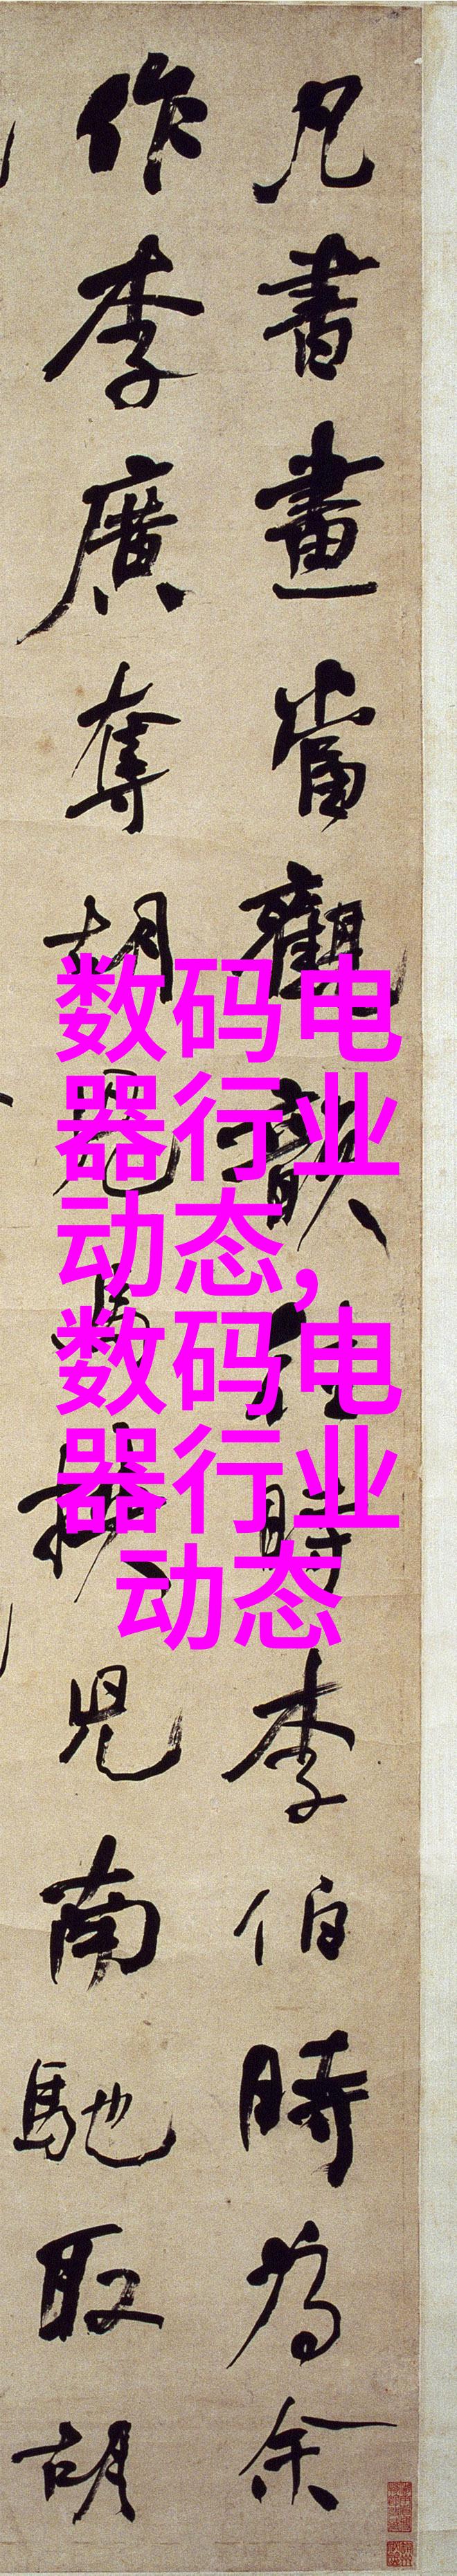 凡書畫當觀韻往時李伯時為余
作李廣奪胡兒馬挾兒南馳取胡
数码电
器行业
动态,
数码电
器行业
动态